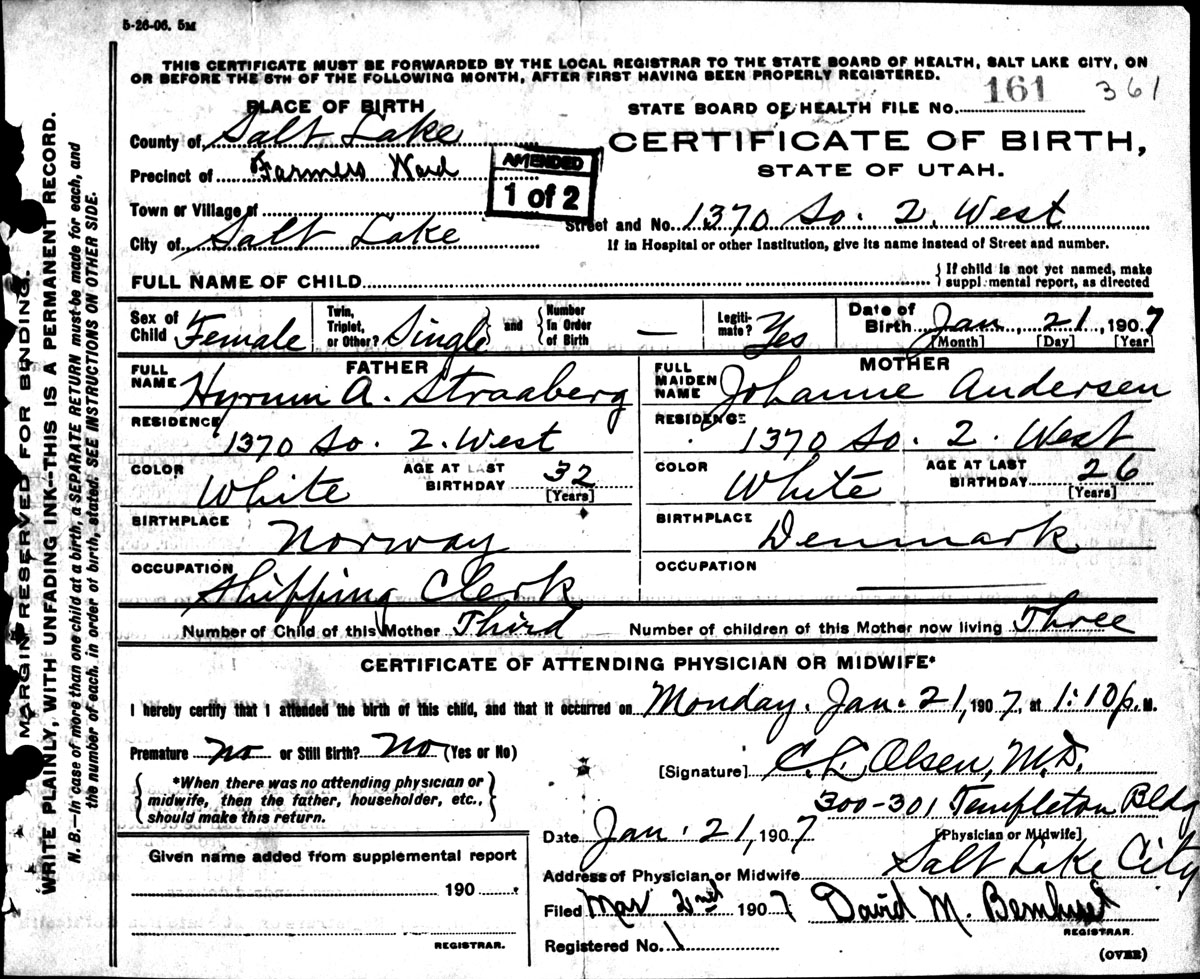 5-26-06. 5M
THIS CERTIFICATE MUST BE FORWARDED BY THE LOCAL REGISTRAR TO THE STATE BOARD OF HEALTH, SALT LAKE CITY, ON
OR BEFORE THE 5TH OF THE FOLLOWING MONTH, AFTER FIRST HAVING BEEN PROPERLY REGISTERED.
PLACE OF BIRTH
STATE BOARD OF HEALTH FILE NO. 161 361
County of Salt Lake
CERTIFICATE OF BIRTH,
STATE OF UTAH.
Precinct of Farmers Ward
AMENDED
1 of 2
Town or Village of
Street and No. 1370 So. 2. West
City of Salt Lake
If in Hospital or other Institution, give its name instead of Street and number.
FULL NAME OF CHILD
If child is not yet named, make
supplemental report, as directed
Sex of Child Female
Twin, Triplet, or Other? Single and Number In Order of Birth —
Legitimate? Yes
Date of Birth Jan. 21, 1907
[Month] [Day] [Year]
FATHER
FULL NAME Hyrum A. Straaberg
RESIDENCE
1370 So. 2. West
COLOR White AGE AT LAST BIRTHDAY 32
[Years]
BIRTHPLACE
Norway
OCCUPATION
Shipping Clerk
MOTHER
FULL MAIDEN NAME Johanne Andersen
RESIDENCE
1370 So. 2. West
COLOR White AGE AT LAST BIRTHDAY 26
[Years]
BIRTHPLACE
Denmark
OCCUPATION
Number of Child of this Mother Third Number of children of this Mother now living Three
CERTIFICATE OF ATTENDING PHYSICIAN OR MIDWIFE*
I hereby certify that I attended the birth of this child, and that it occurred on Monday. Jan. 21, 1907, at 1:10 p. M.
Premature No or Still Birth? No (Yes or No)
[Signature] C. L. Olsen, M.D.
*When there was no attending physician or
midwife, then the father, householder, etc.,
should make this return.
300-301 Templeton Bldg
Date Jan. 21, 1907 [Physician or Midwife]
Address of Physician or Midwife Salt Lake City
Given name added from supplemental report
190
REGISTRAR.
Filed Mar 2nd 1907 David M.
REGISTRAR.
Registered No. 1
(OVER)
MARGIN RESERVED FOR BINDING.
WRITE PLAINLY, WITH UNFADING INK—THIS IS A PERMANENT RECORD.
N. B.—In case of more than one child at a birth, a SEPARATE RETURN must be made for each, and
the number of each, in order of birth, stated. SEE INSTRUCTIONS ON OTHER SIDE.